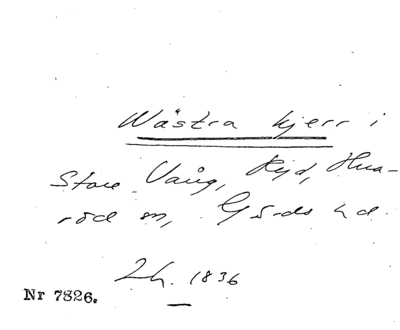 Wästra kjerr i
Store Vång, Ryd, Hua-
röd sn, Gärds hd.
Lh. 1836
Nr 7826.